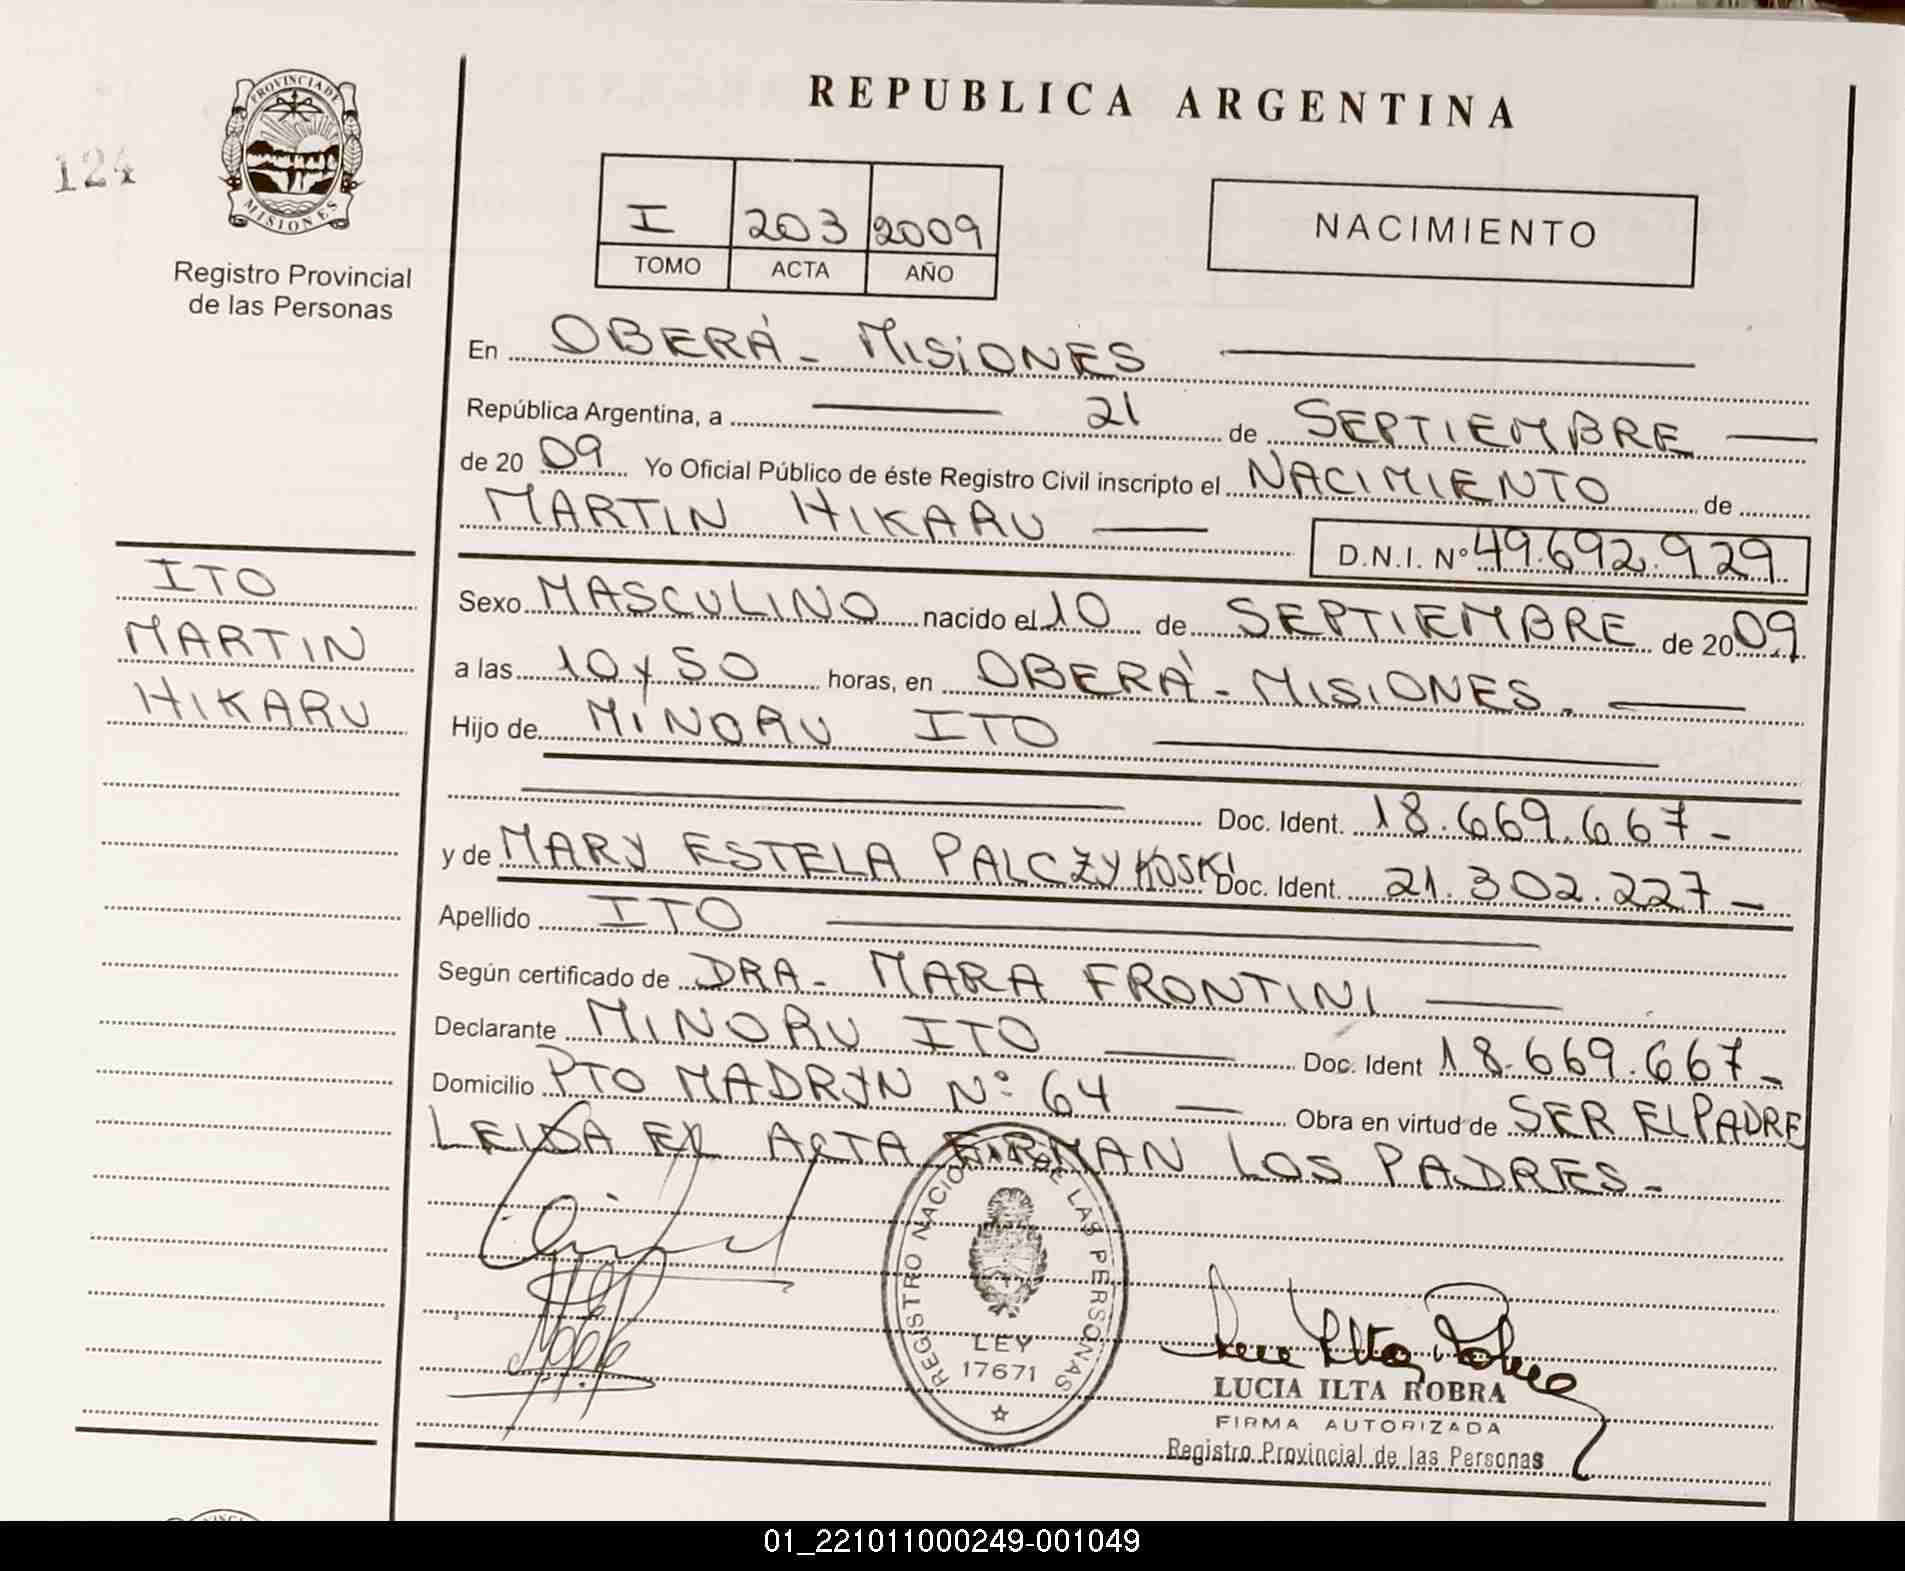 124
PROVINCIA DE
MISIONES
Registro Provincial
de las Personas
REPUBLICA ARGENTINA
I 203 2009
TOMO ACTA AÑO
NACIMIENTO
En OBERÁ - MISIONES
República Argentina, a 21 de SEPTIEMBRE
de 2009 Yo Oficial Público de éste Registro Civil inscripto el NACIMIENTO de
MARTIN HIKARU
D.N.I. Nº 49.692.929
ITO
MARTIN
HIKARU
Sexo MASCULINO nacido el 10 de SEPTIEMBRE de 2009
a las 10 y 50 horas, en OBERÁ - MISIONES.
Hijo de MINORU ITO
Doc. Ident. 18.669.667-
y de MARY ESTELA PALCZYKOSKI Doc. Ident. 21.302.227-
Apellido ITO
Según certificado de DRA- MARA FRONTINI
Declarante MINORU ITO Doc. Ident 18.669.667-
Domicilio PTO MADRYN Nº 64 Obra en virtud de SER EL PADRE
LEIDA EL ACTA FIRMAN LOS PADRES-
REGISTRO NACIONAL DE LAS PERSONAS
LEY
17671
Lucia Ilta Robra
LUCIA ILTA ROBRA
FIRMA AUTORIZADA
Registro Provincial de las Personas
01_221011000249-001049